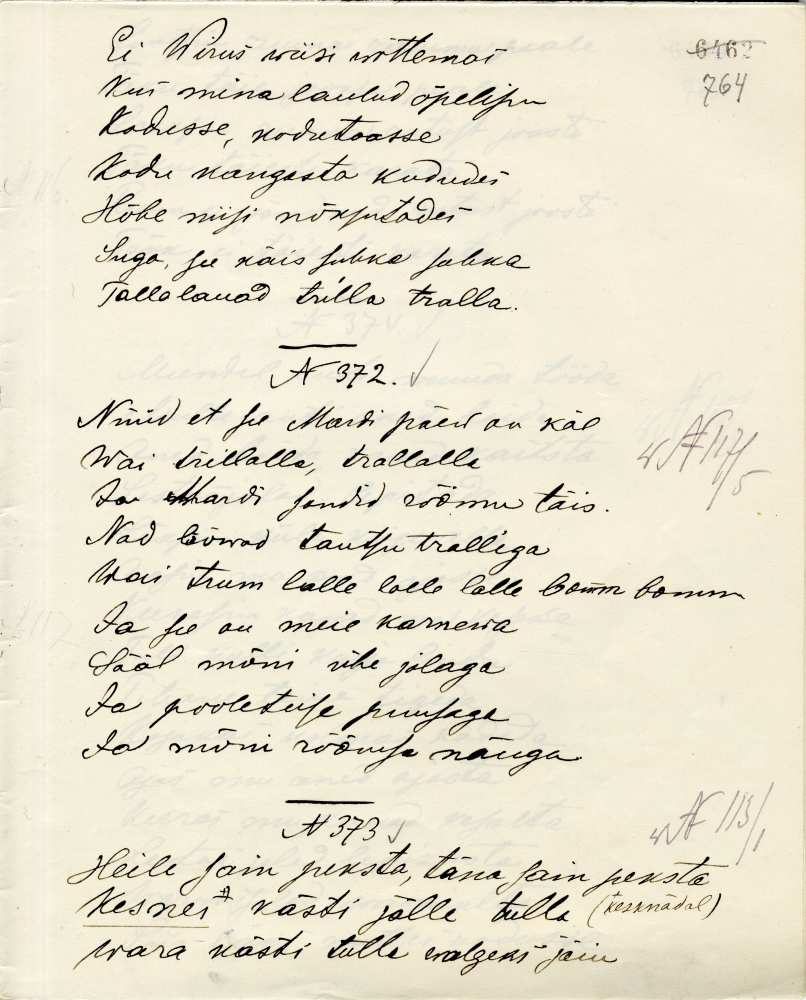 6462
764
Ei Wirus wiisi wõttemas
Kui mina laulud õpelisin
Kodusse, kodutoasse
Kodu kangasta kududes
Hõbe niisi nõksutades
Suga, se käis sulka solka
Tallalauad trilla tralla.
N 372. ✓
Nüüd et se Mardi päew on käe
Wai trillalla, trallalla
Ja Mardi sandid rõõmu täis.
Nad löwad tantsu tralliga
Wai trum lalle lalle lalle bomm bomm
Ja se on meie karnewa
Sääl mõni ühe jalaga
Ja pooleteise puusaga
Ja mõni rõõmsa näuga.
N 117/5
N 373 ✓
N 113/1
Heile sain peksta, täna sain peksta
Kesnes + kästi jälle tulla (+ kesknädal)
wara kästi tulla walgeks jäin